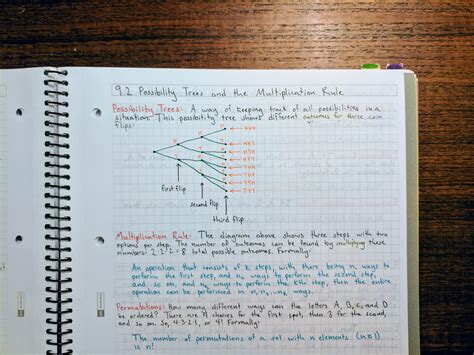 9.2 Possibility Trees and the Multiplication Rule
Possibility Trees: A way of keeping track of all possibilities in a
situation. This possibility tree shows different outcomes for three coin
flips:
HHH
HHT
HTH
HTT
THH
THT
TTH
TTT
first flip
second flip
third flip
Multiplication Rule: The diagram above shows three steps with two
options per step. The number of outcomes can be found by multiplying these
numbers: 2·2·2 = 8 total possible outcomes. Formally:
An operation that consists of k steps, with there being n₁ ways to
perform the first step, and n₂ ways to perform the second step,
and so on, and nₖ ways to perform the kth step, then the entire
operation can be performed in n₁n₂...nₖ ways.
Permutations: How many different ways can the letters A, B, C, and D
be ordered? There are 4 choices for the first spot, then 3 for the second,
and so on. So, 4·3·2·1, or 4! Formally:
The number of permutations of a set with n elements (n≥1)
is n!